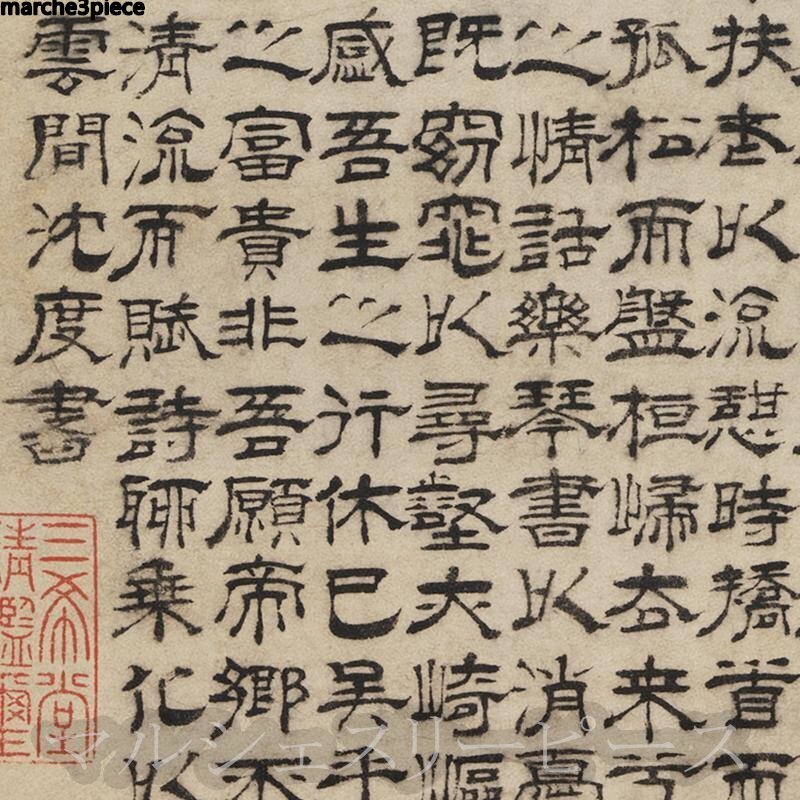 marche3piece
扶老以流憩時撟首而
孤松而盤桓歸去来兮
之情話樂琴書以消憂
既窈窕以尋壑亦崎嶇
感吾生之行休已矣乎
之富貴非吾願帝鄉不
清流而賦詩聊乗化以
雲間沈度書
三希堂
精鑒璽
マルシェスリーピース